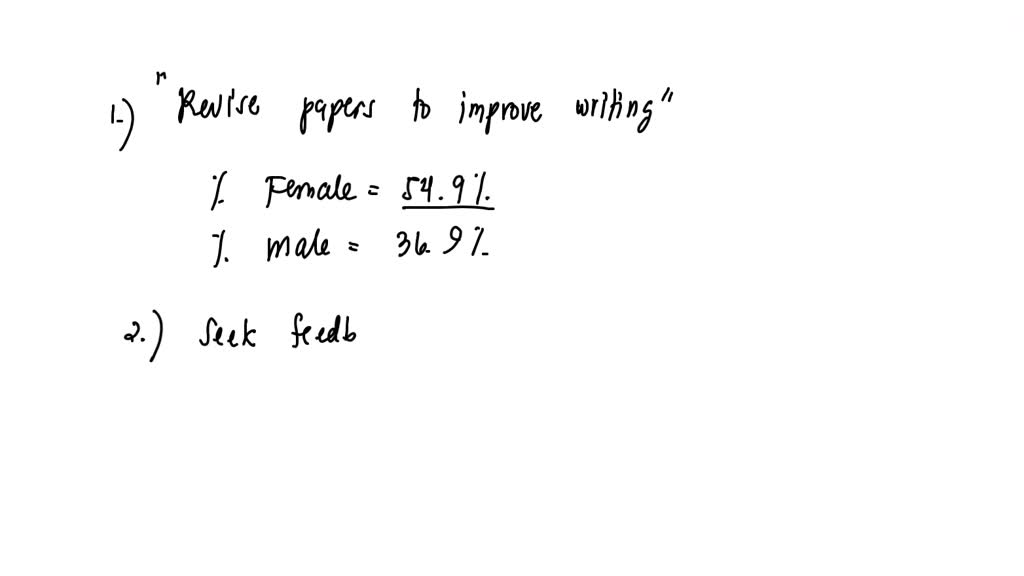 1.) "Revise papers to improve writing"
% Female = 54.9%
% male = 36.9%
2.) Seek feedb